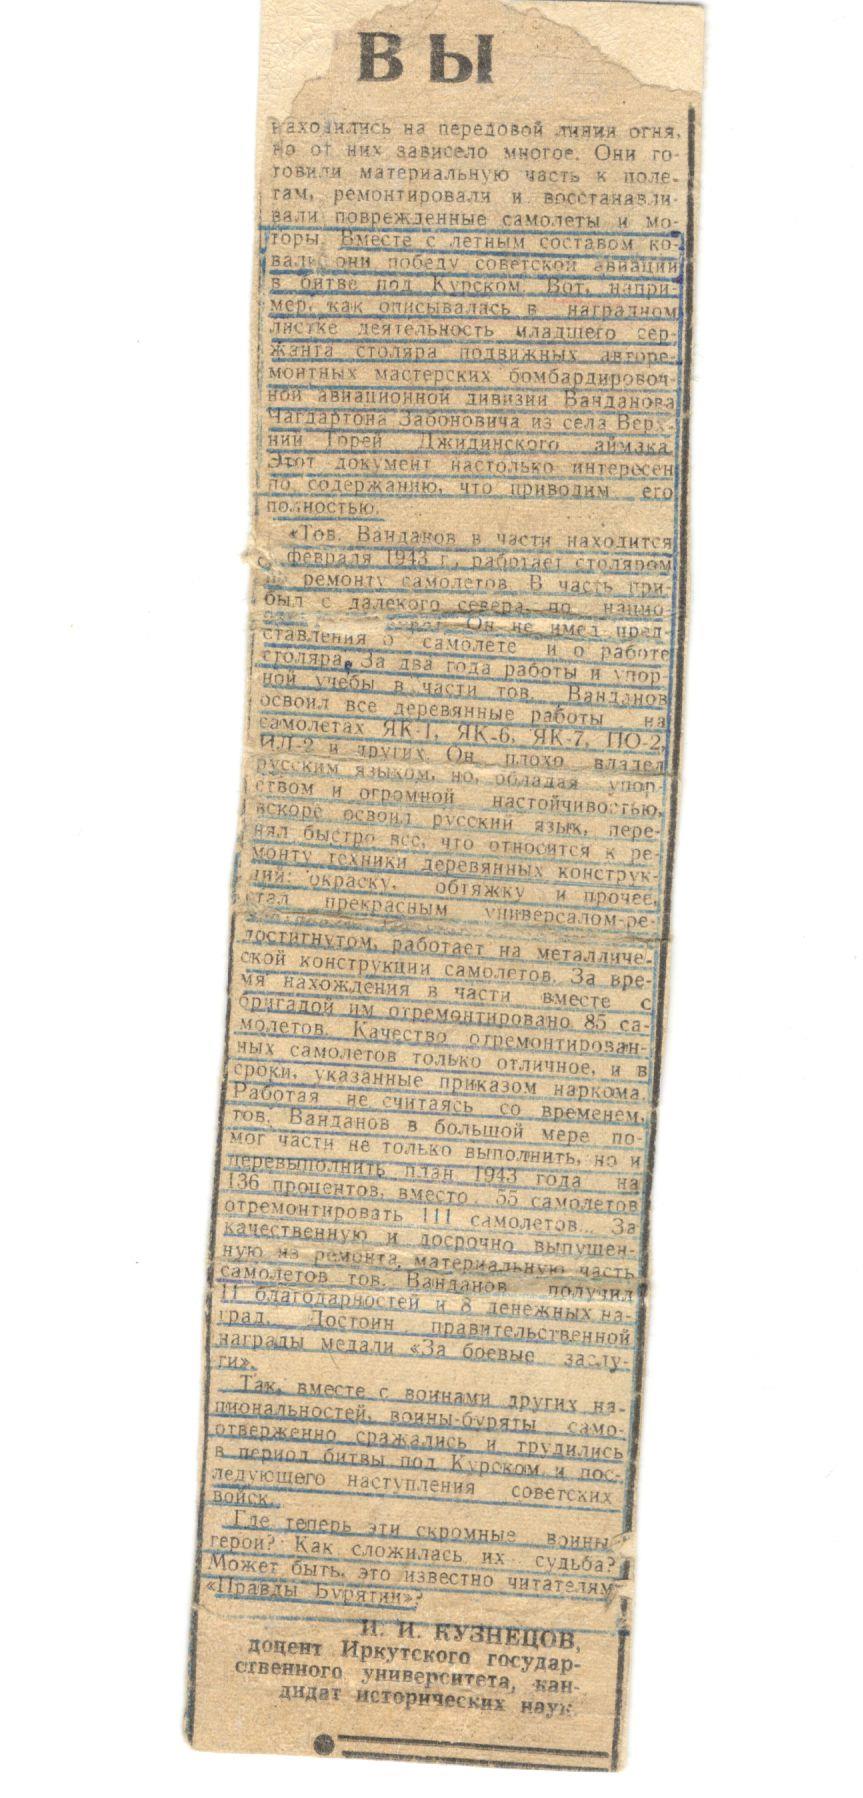 ВЫ
находились на передовой линии огня,
но от них зависело многое. Они го-
товили материальную часть к поле-
там, ремонтировали и восстанавли-
вали поврежденные самолеты и мо-
торы. Вместе с летным составом ко-
вали они победу советской авиации
в битве под Курском. Вот, напри-
мер, как описывалась в наградном
листке деятельность младшего сер-
жанта столяра подвижных авторе-
монтных мастерских бомбардировоч-
ной авиационной дивизии Ванданова
Чагдартона Забоновича из села Верх-
ний Торей Джидинского аймака.
Этот документ настолько интересен
по содержанию, что приводим его
полностью.
«Тов. Ванданов в части находится
февраля 1943 г., работает столяром
по ремонту самолетов. В часть при-
был с далекого севера, по нацио-
Он не имел пред-
ставления о самолете и о работе
столяра. За два года работы и упор-
ной учебы в части тов. Ванданов
освоил все деревянные работы на
самолетах ЯК-1, ЯК-6, ЯК-7, ПО-2,
ИЛ-2 и других. Он плохо владел
русским языком, но, обладая упор-
ством и огромной настойчивостью,
вскоре освоил русский язык, пере-
нял быстро все, что относится к ре-
монту техники деревянных конструк-
ций: окраску, обтяжку и прочее,
стал прекрасным универсалом-ре-
достигнутом, работает на металличе-
ской конструкции самолетов. За вре-
мя нахождения в части вместе с
бригадой им отремонтировано 85 са-
молетов. Качество отремонтирован-
ных самолетов только отличное, и в
сроки, указанные приказом наркома.
Работая не считаясь со временем,
тов. Ванданов в большой мере по-
мог части не только выполнить, но и
перевыполнить план 1943 года на
136 процентов, вместо 55 самолетов
отремонтировать 111 самолетов... За
качественную и досрочно выпущен-
ную из ремонта материальную часть
самолетов тов. Ванданов получил
11 благодарностей и 8 денежных на-
град. Достоин правительственной
награды медали «За боевые заслу-
ги».
Так, вместе с воинами других на-
циональностей, воины-буряты само-
отверженно сражались и трудились
в период битвы под Курском и пос-
ледующего наступления советских
войск.
Где теперь эти скромные воины-
герои? Как сложилась их судьба?
Может быть, это известно читателям
«Правды Бурятии»?
И. И. КУЗНЕЦОВ,
доцент Иркутского государ-
ственного университета, кан-
дидат исторических наук.